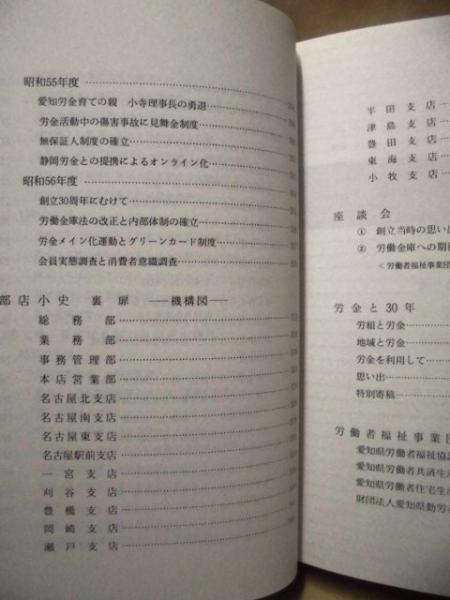 昭和55年度
愛知労金育ての親 小寺理事長の勇退
労金活動中の傷害事故に見舞金制度
無保証人制度の確立
静岡労金との提携によるオンライン化
昭和56年度
創立30周年にむけて
労働金庫法の改正と内部体制の確立
労金メイン化運動とグリーンカード制度
会員実態調査と消費者意識調査
部店小史 裏扉 ――機構図――
総務部
業務部
事務管理部
本店営業部
名古屋北支店
名古屋南支店
名古屋東支店
名古屋駅前支店
一宮支店
刈谷支店
豊橋支店
岡崎支店
瀬戸支店
半田支店
津島支店
豊田支店
東海支店
小牧支店
座談会
① 創立当時の思い
② 労働金庫への期
<労働者福祉事業団
労金と30年
労組と労金
地域と労金
労金を利用して
思い出
特別寄稿
労働者福祉事業団
愛知県労働者福祉協
愛知県労働者共済生
愛知県労働者住宅生
財団法人愛知県勤労